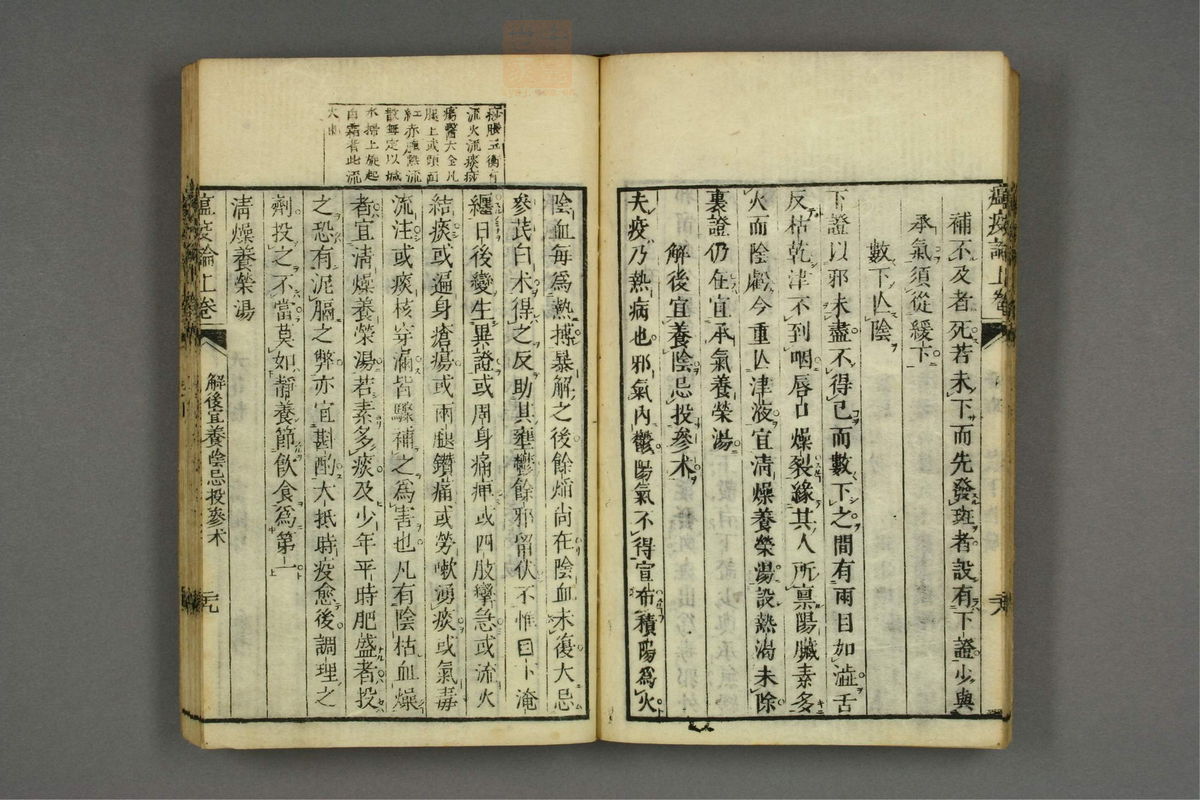 瘟疫論上卷
補不及者死若未下而先發斑者設有下證少與
承氣須從緩下
數下亾陰
下證以邪未盡不得已而數下之間有兩目如澁舌
反枯乾津不到咽唇口燥裂緣其人所稟陽臟素多
火而陰虧今重亾津液宜清燥養榮湯設熱渴未除
裏證仍在宜承氣養榮湯
解後宜養陰忌投參术
夫疫乃熱病也邪氣內鬱陽氣不得宣布積陽爲火
陰血每爲熱搏暴解之後餘焰尚在陰血未復大忌
參芪白术得之反助其壅鬱餘邪留伏不惟目下淹
纏日後變生異證或周身痛痹或四肢攣急或流火
結痰或遍身瘡瘍或兩腿鑽痛或勞嗽湧痰或氣毒
流注或痰核穿漏皆驟補之爲害也凡有陰枯血燥
者宜清燥養榮湯若素多痰及少年平時肥盛者投
之恐有泥膈之弊亦宜斟酌大抵時疫愈後調理之
劑投之不當莫如靜養節飲食爲第一
清燥養榮湯
瘟疫論上卷
解後宜養陰忌投參术
流火流痰
瘍醫大全凡
腿上或頭面
紅赤腫熱流
散無定以
水掃上旋起
白霜者此流
火